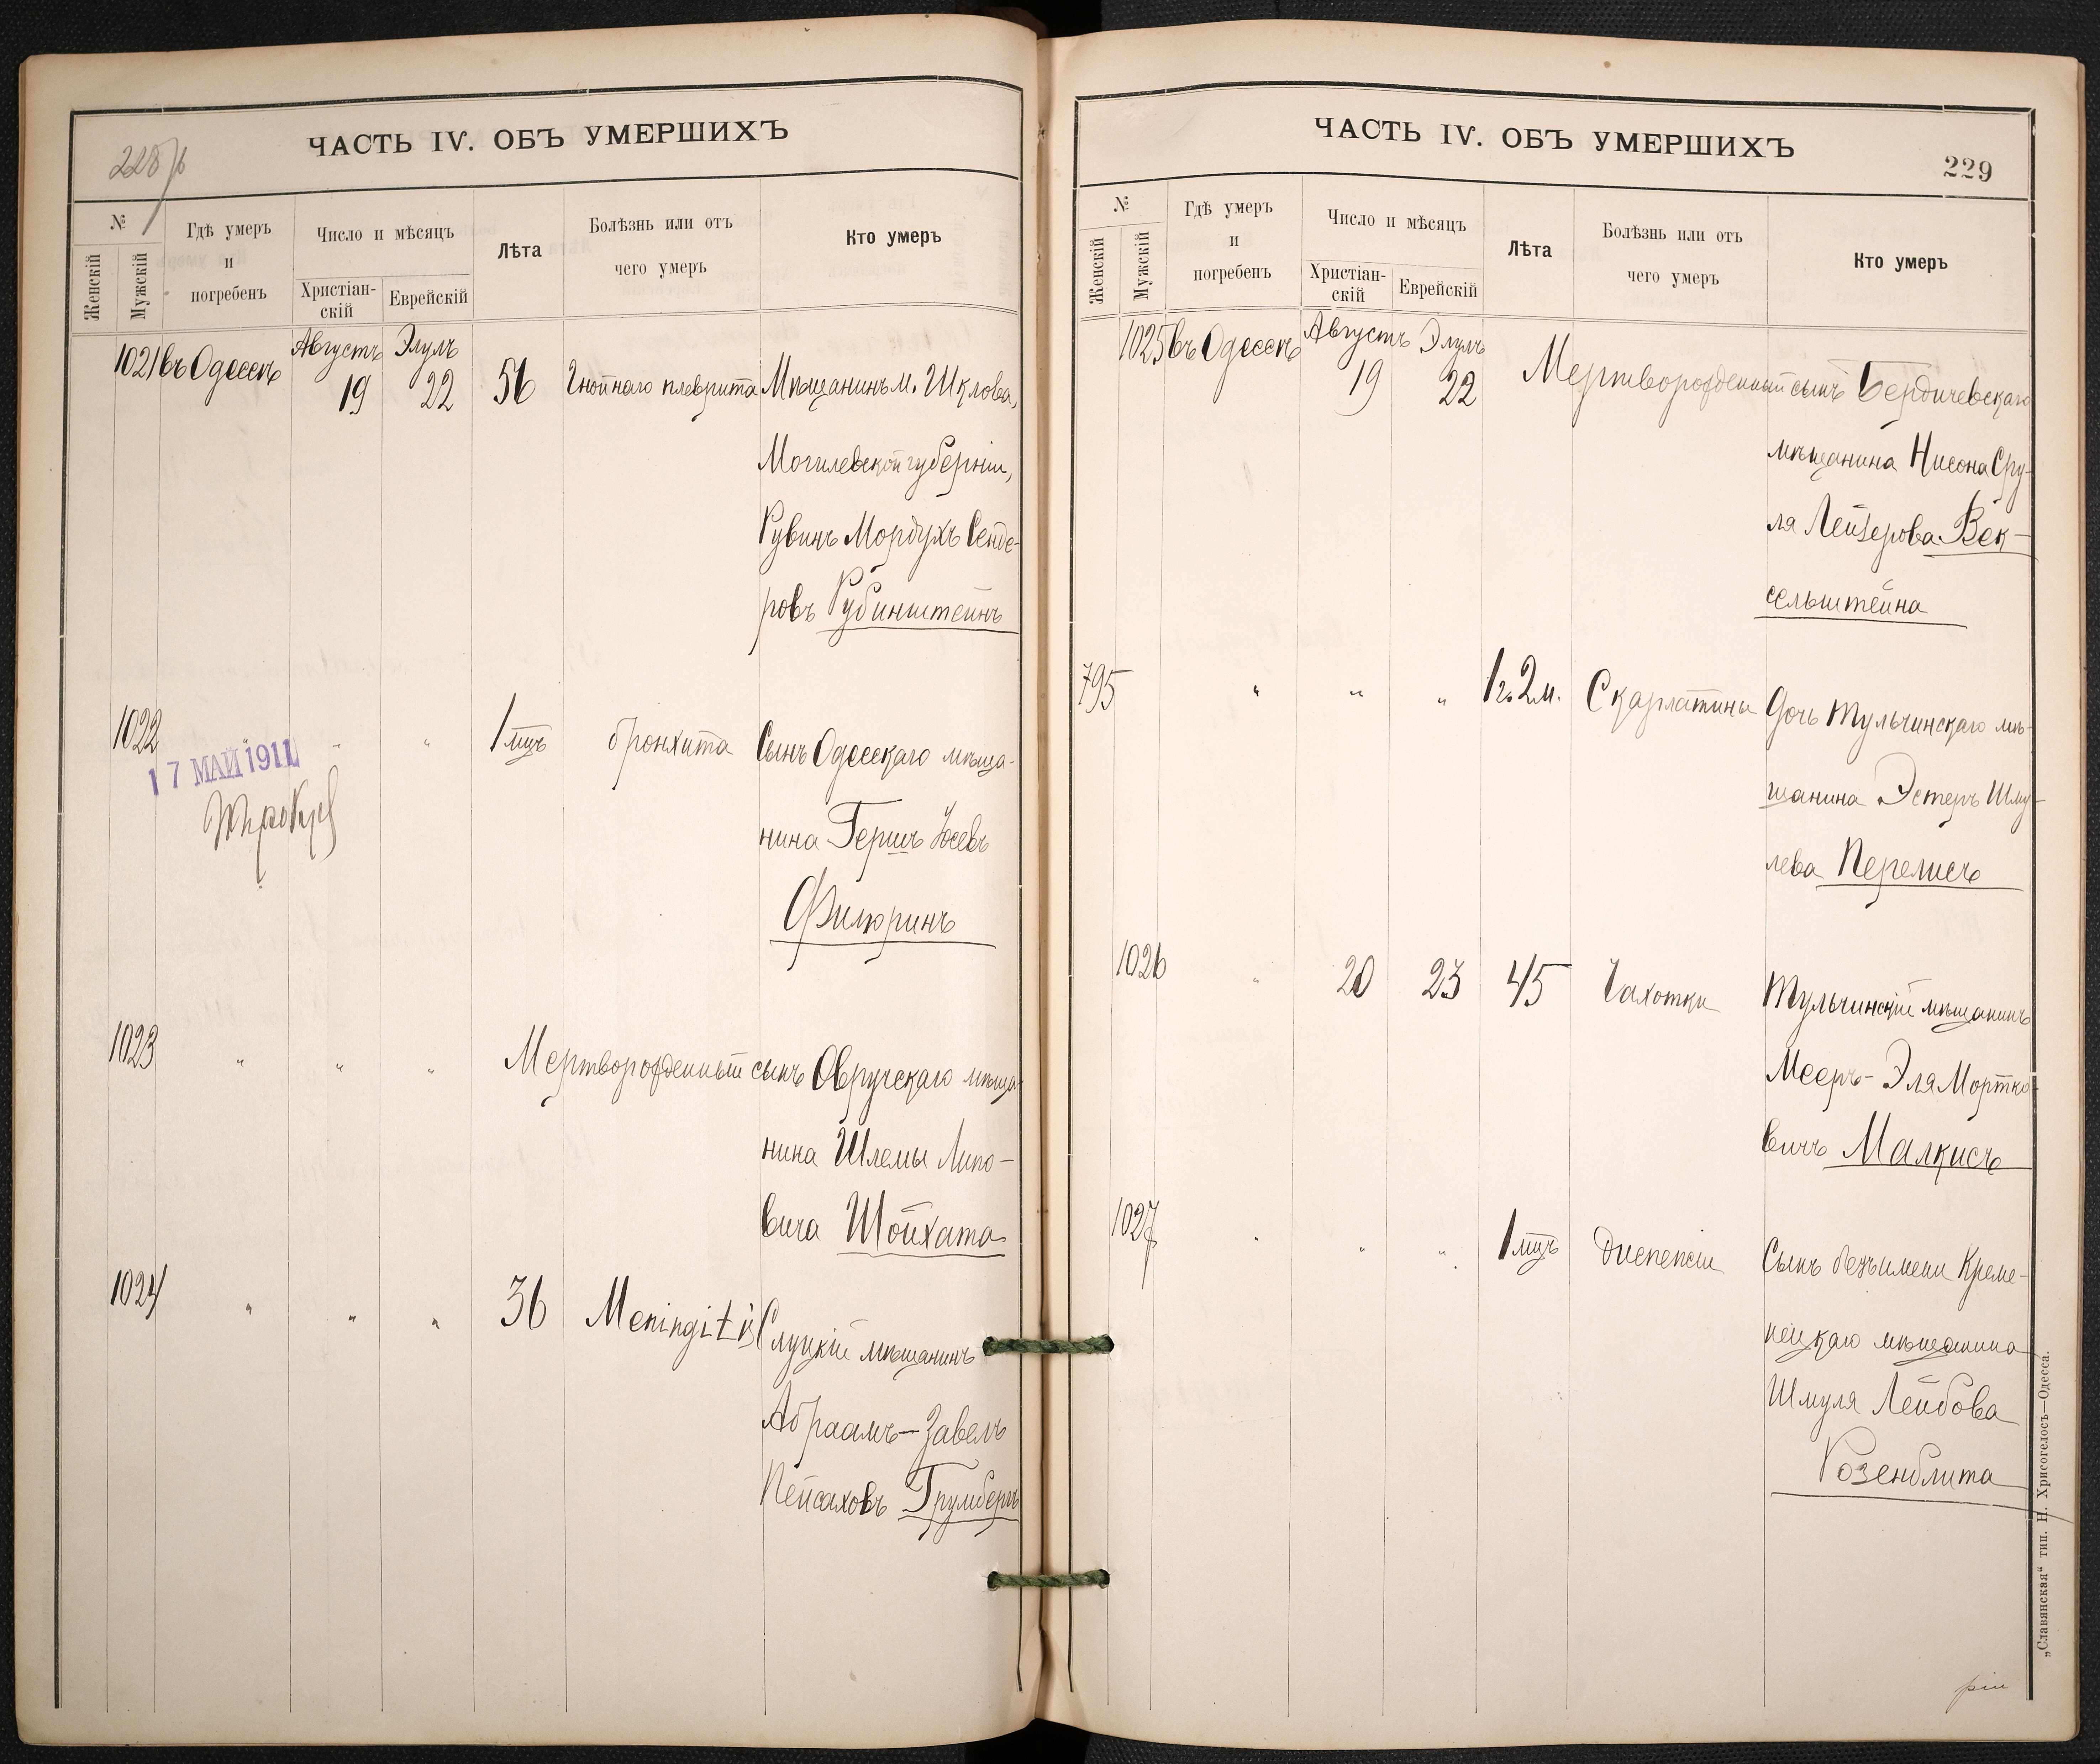 ЧАСТЬ IV. ОБЪ УМЕРШИХЪ
№
Женскій
Мужскій
Гдѣ умеръ
и
погребенъ
Число и мѣсяцъ
Христіан-
скій
Еврейскій
Лѣта
Болѣзнь или отъ
чего умеръ
Кто умеръ
1021 въ Одессѣ Августъ 19 Элулъ 22 56 Гнойнаго плеврита Мѣщанинъ м. Шклова,
Могилевской губерніи,
Рувинъ Мордухъ Сенде-
ровъ Рубинштейнъ
1022 " " " 1 мцъ бронхита Сынъ Одесскаго мѣща-
нина Гершъ Іосевъ
Филюринъ
17 МАЙ 1911
1023 " " " Мертворожденный сынъ Овручскаго мѣща-
нина Шлемы Липо-
вича Шойхата
1024 " " " 36 Meningitis Слуцкій мѣщанинъ
Абраамъ-Завель
Пейсаховъ Грумбергъ
ЧАСТЬ IV. ОБЪ УМЕРШИХЪ
229
№
Женскій
Мужскій
Гдѣ умеръ
и
погребенъ
Число и мѣсяцъ
Христіан-
скій
Еврейскій
Лѣта
Болѣзнь или отъ
чего умеръ
Кто умеръ
1025 въ Одессѣ Августъ 19 Элулъ 22 Мертворожденный сынъ Бердичевскаго
мѣщанина Нисона Сру-
ля Лейзерова Век-
сельштейна
795 " " " 1 г. 2 м. Скарлатины Дочь Тульчинскаго мѣ-
щанина Эстеръ Шму-
лева Перелисъ
1026 " 20 23 45 Чахотки Тульчинскій мѣщанинъ
Мееръ-Эля Мортко-
вичъ Малкисъ
1027 " " " 1 мцъ Диспепсіи Сынъ безъ имени Креме-
нецкаго мѣщанина
Шмуля Лейбова
Розенблита
„Славянская“ тип. Н. Хрисогелосъ—Одесса.